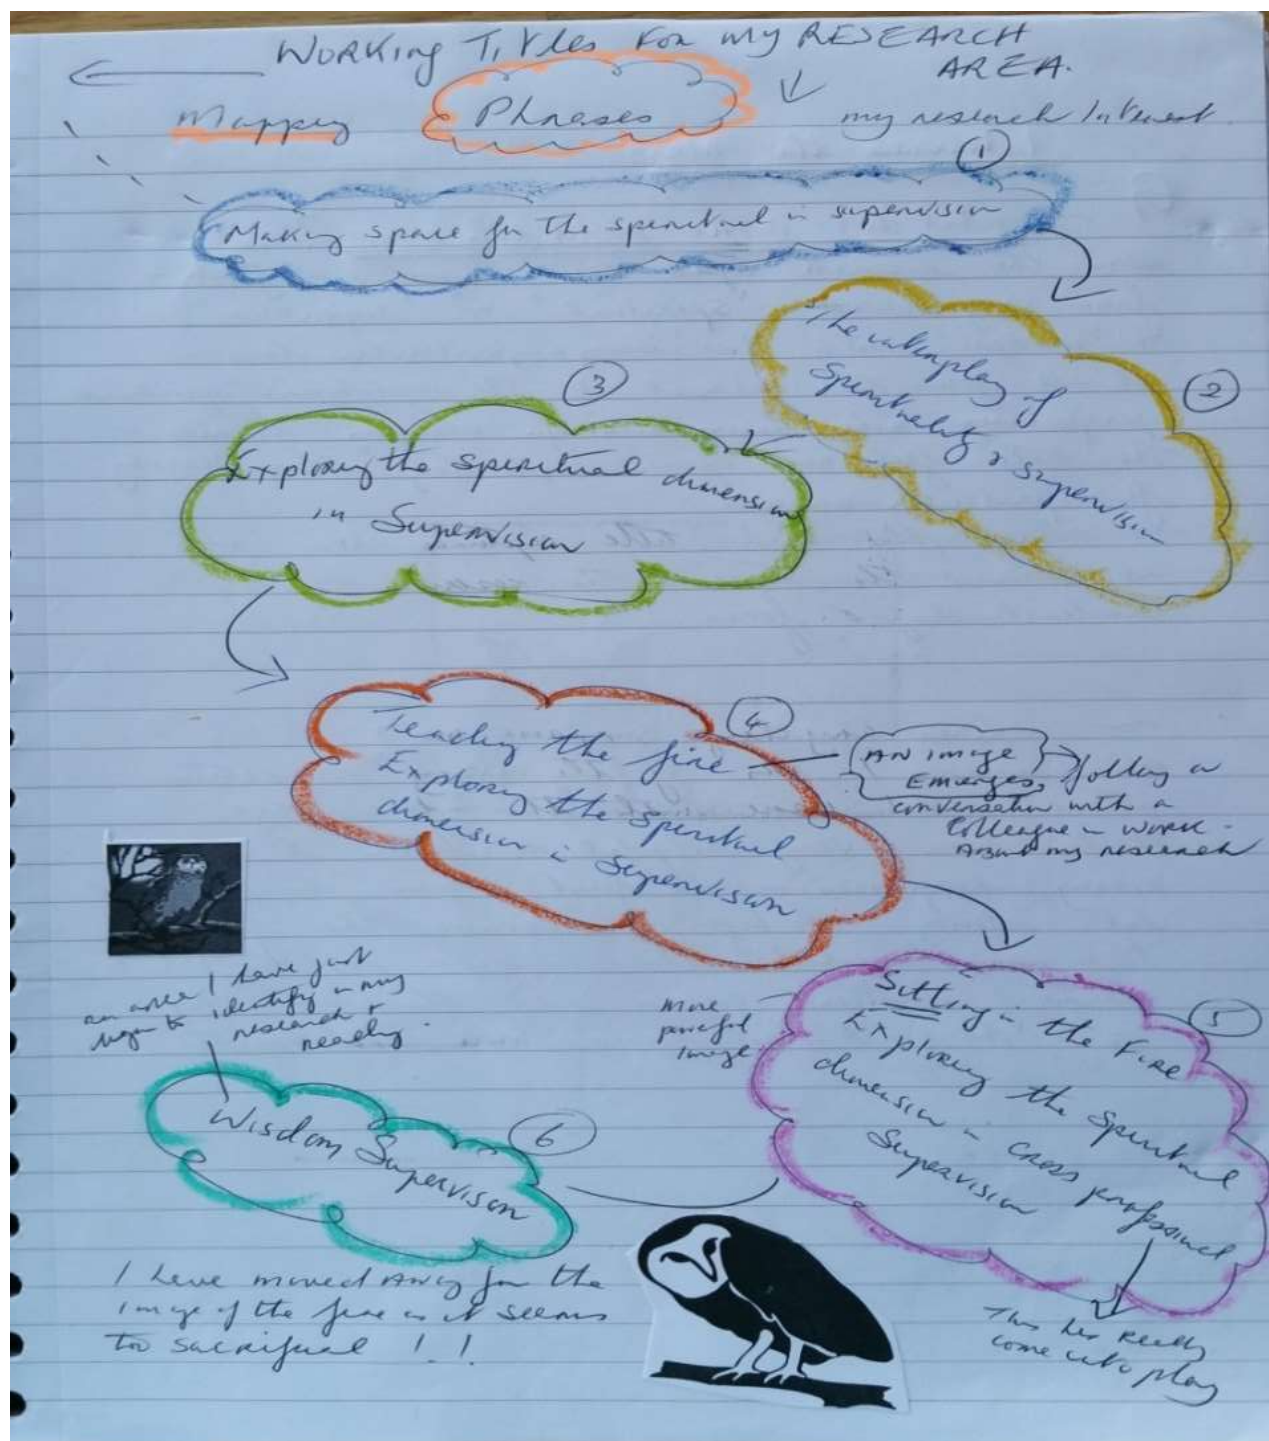 WORKING TITLES FOR MY RESEARCH
AREA.
Mapping
Phrases
my research Interest
1
Making space for the spiritual in supervision
2
The interplay of
Spirituality & supervision
3
Exploring the spiritual dimension
in Supervision
4
Tending the fire
Exploring the spiritual
dimension in Supervision
AN IMAGE
Emerges,
following a
conversation with a
colleague in WORK -
About my research
5
Sitting in the Fire
Exploring the Spiritual
dimension in cross professional
Supervision
more
powerful
image
This has really
come into play
6
Wisdom Supervision
an area I have just
begun to identify in my
research +
reading.
I have moved away from the
image of the fire as it seems
too sacrificial !!